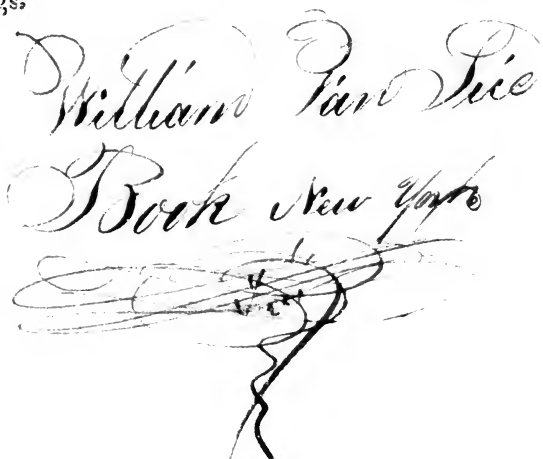 William Van Sice
Book New York